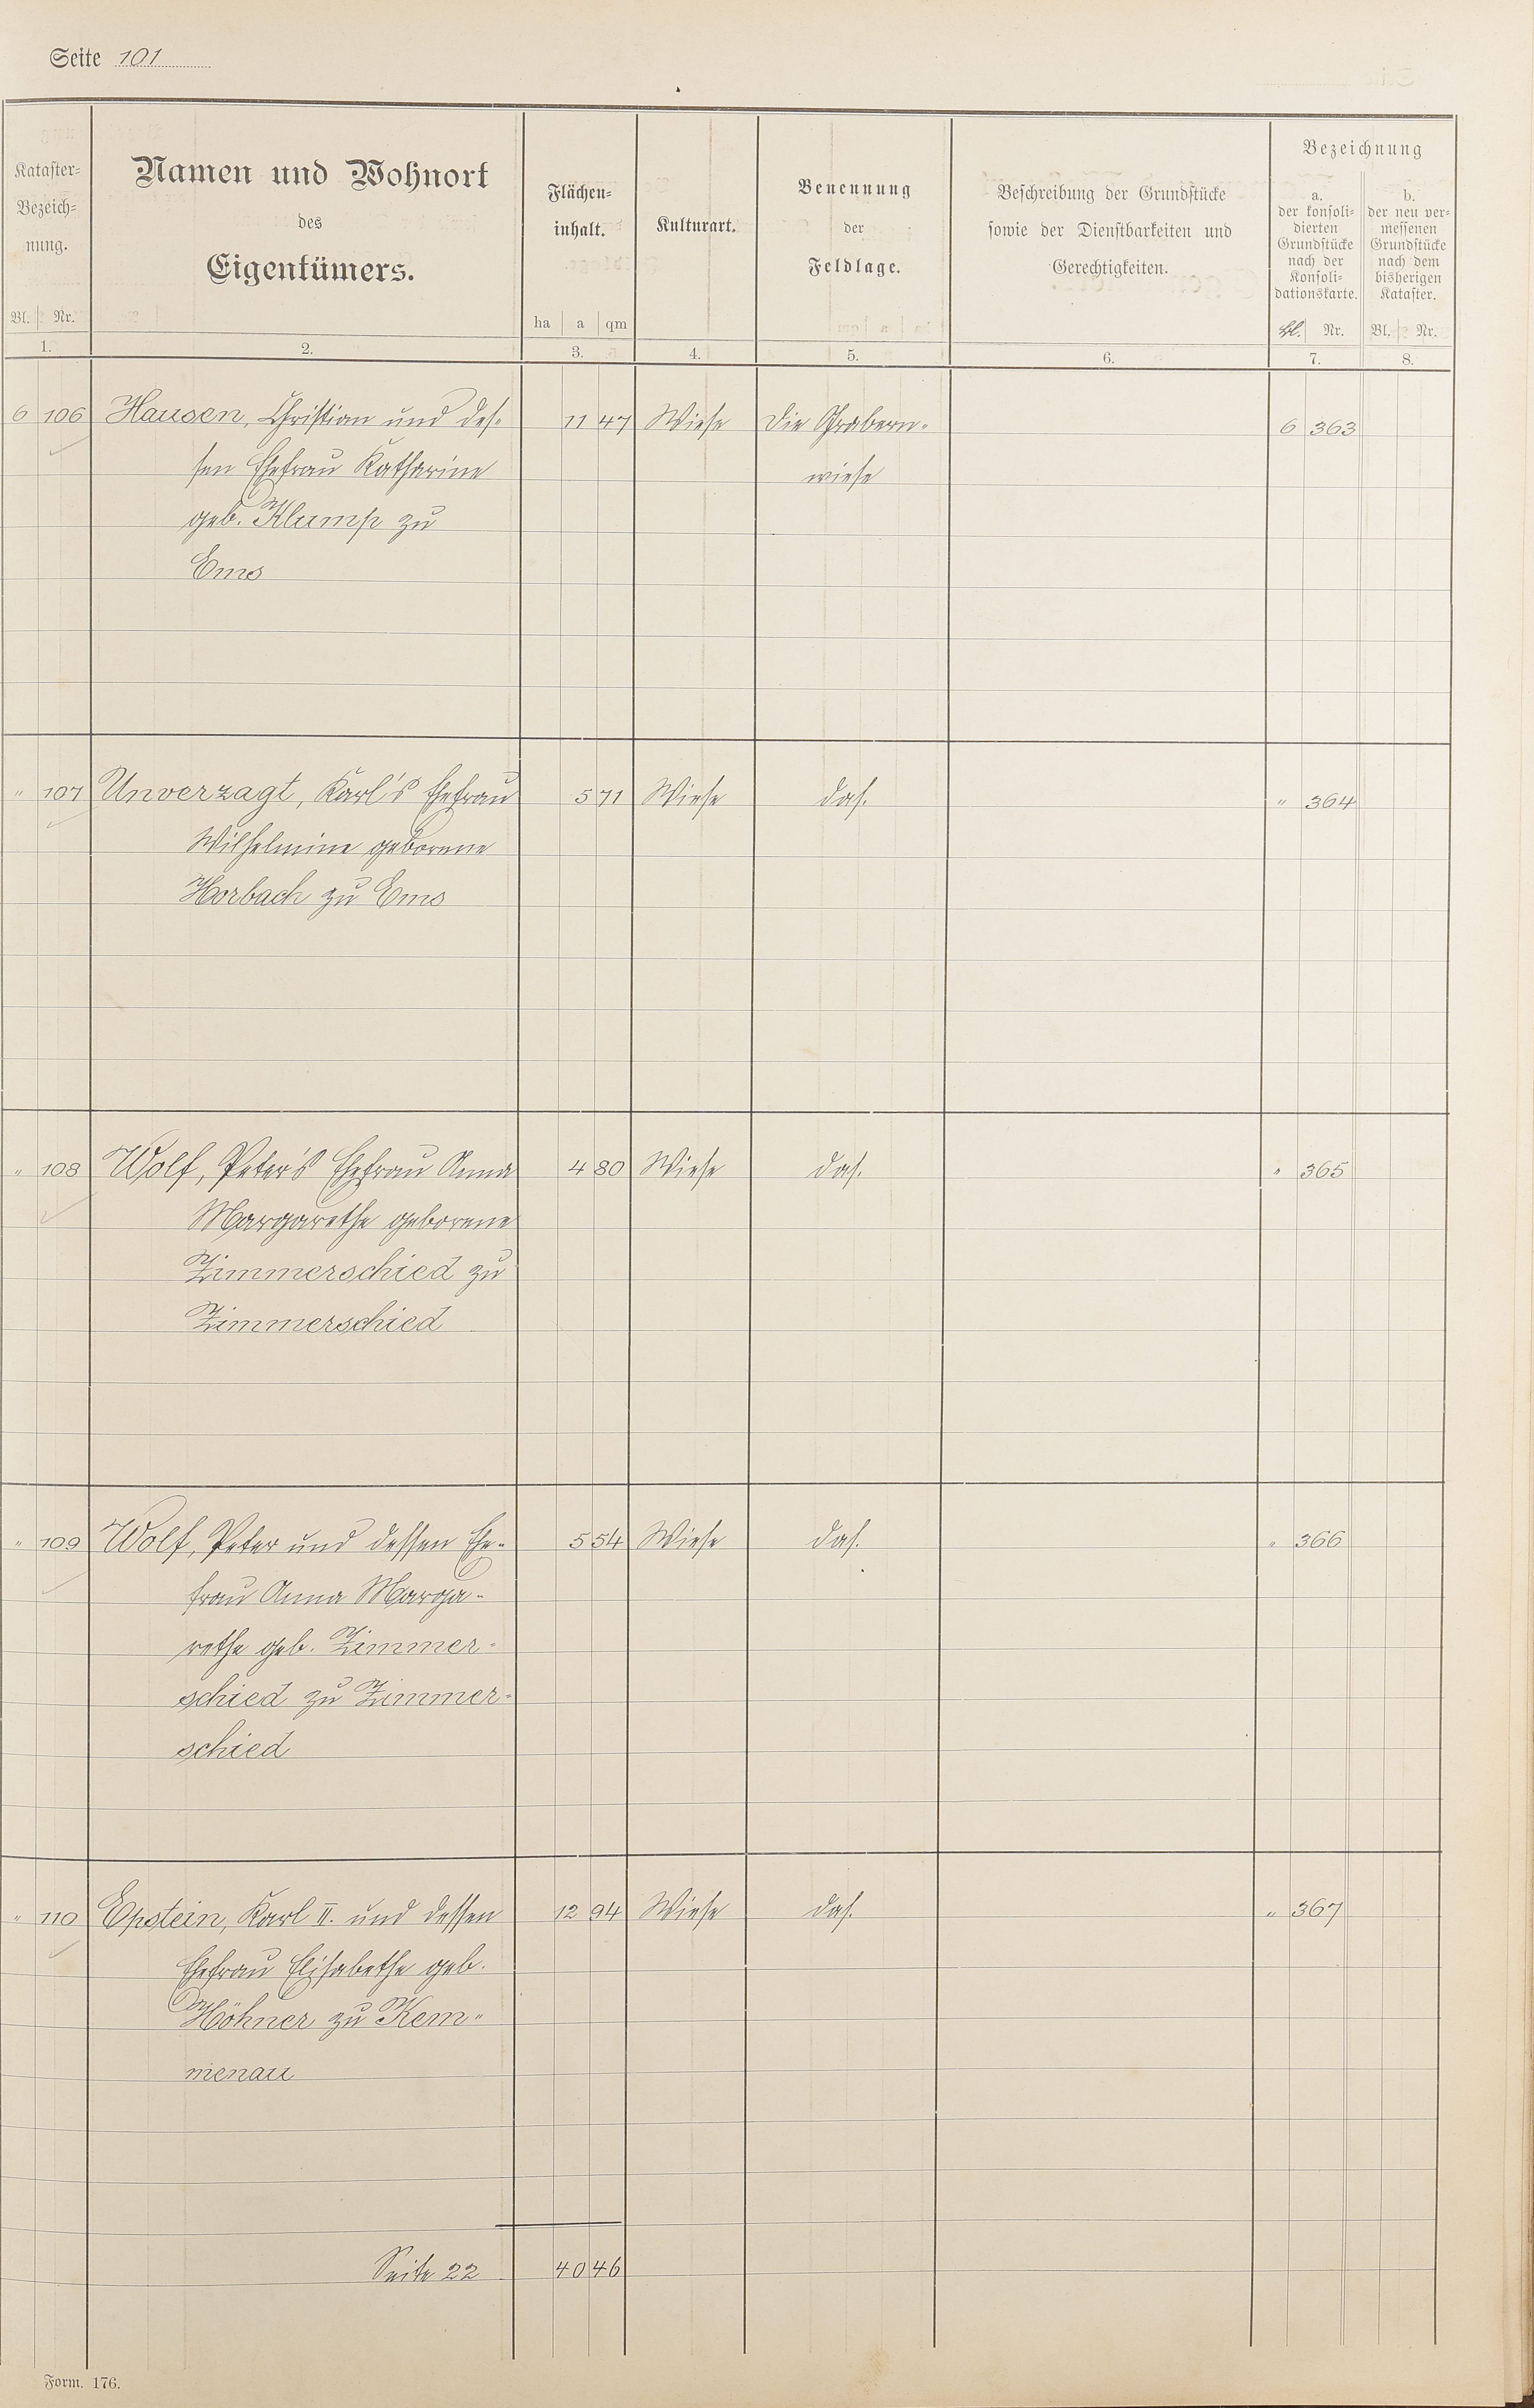 Seite 101
Kataster-
Bezeich-
nung.
Bl. Nr.
1.
Namen und Wohnort
des
Eigentümers.
2.
Flächen-
inhalt.
ha a qm
3.
Kulturart.
4.
Benennung
der
Feldlage.
5.
Beschreibung der Grundstücke
sowie der Dienstbarkeiten und
Gerechtigkeiten.
6.
Bezeichnung
a.
der konsoli-
dierten
Grundstücke
nach der
Konsoli-
dationskarte.
Bl. Nr.
7.
b.
der neu ver-
messenen
Grundstücke
nach dem
bisherigen
Kataster.
Bl. Nr.
8.
6 106 Hausen, Christian und des- 11 47 Wiese Die Grabern- 6 363
sen Ehefrau Katharine wiese
geb. Klump zu
Ems
" 107 Unverzagt, Karl's Ehefrau 5 71 Wiese das. " 364
Wilhelmine geborene
Horbach zu Ems
" 108 Wolf, Peter's Ehefrau Anna 4 80 Wiese das. " 365
Margarethe geborene
Zimmerschied zu
Zimmerschied
" 109 Wolf, Peter und dessen Ehe- 5 54 Wiese das. " 366
frau Anna Marga-
rethe geb. Zimmer-
schied zu Zimmer-
schied
" 110 Epstein, Karl II. und dessen 12 94 Wiese das. " 367
Ehefrau Elisabethe geb.
Höhner zu Kem-
menau
Seite 22 40 46
Form. 176.